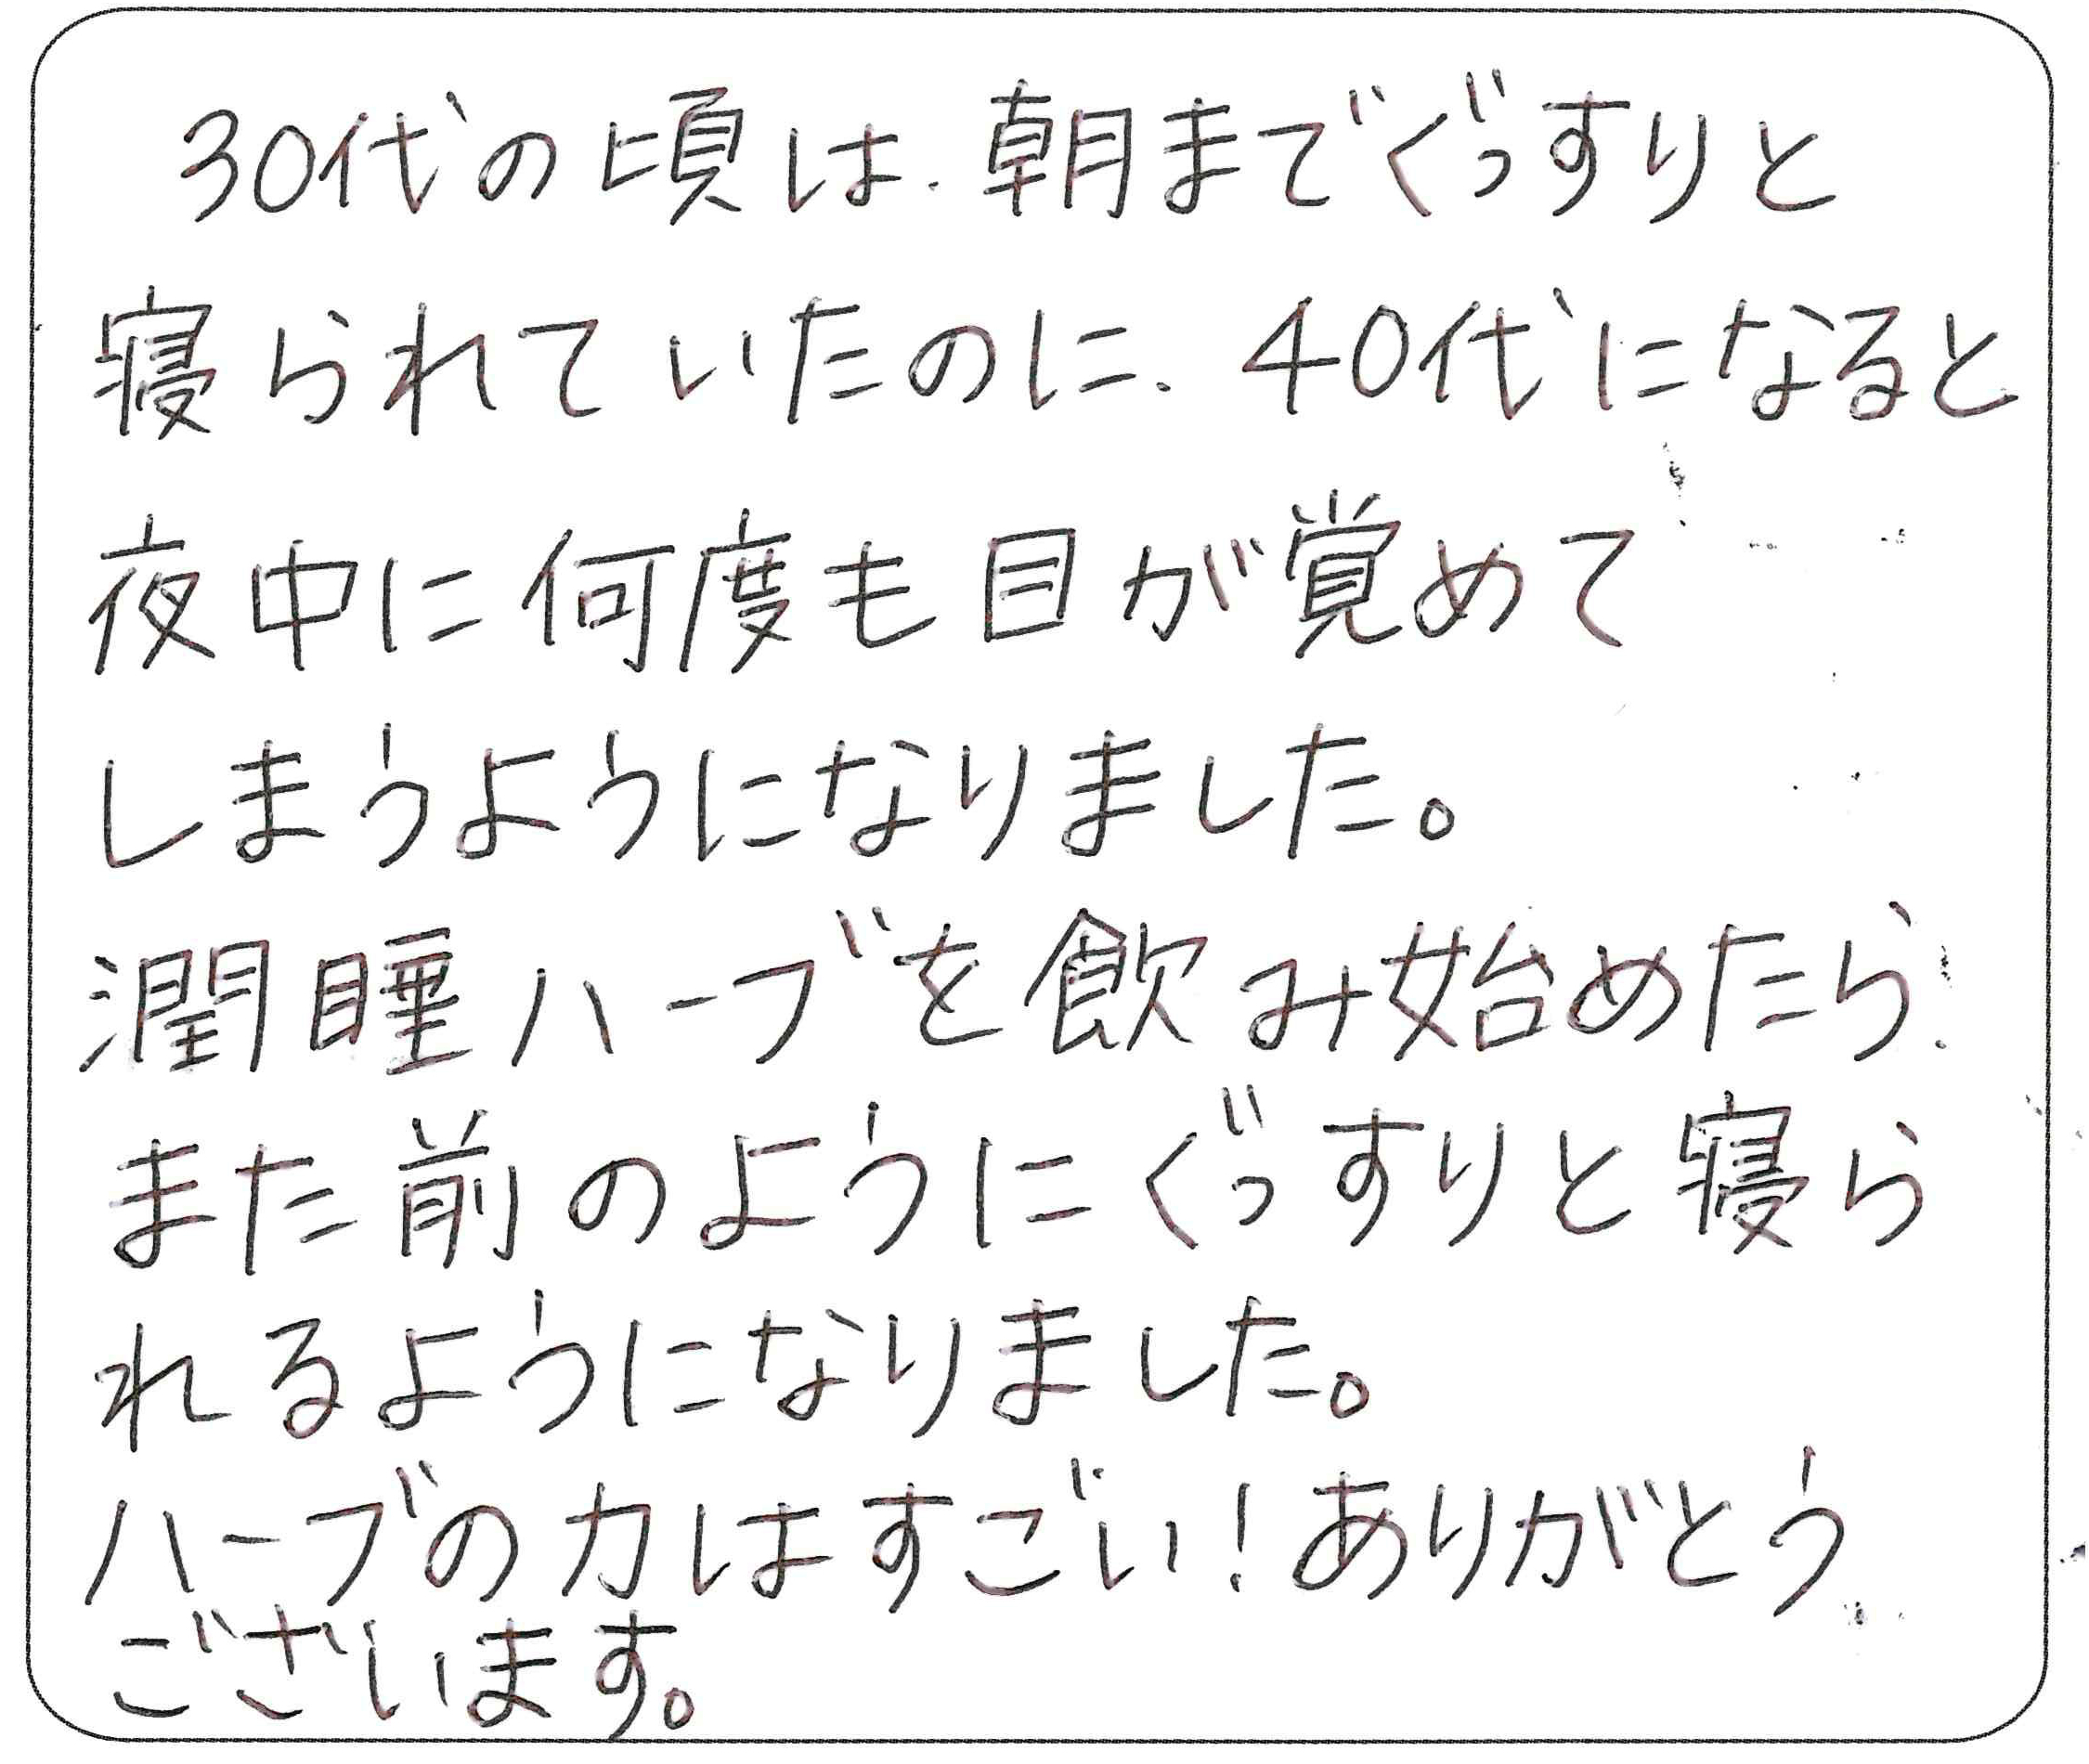 30代の頃は、朝までぐっすりと
寝られていたのに、40代になると
夜中に何度も目が覚めて
しまうようになりました。
潤睡ハーブを飲み始めたら、
また前のようにぐっすりと寝ら
れるようになりました。
ハーブの力はすごい!ありがとう
ございます。